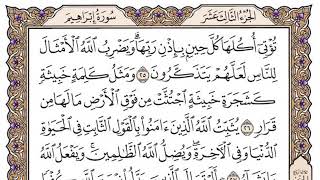 الجزء الثالث عشر سورة إبراهيم
تُؤْتِىٓ أُكُلَهَا كُلَّ حِينٍۭ بِإِذْنِ رَبِّهَا ۗ وَيَضْرِبُ ٱللَّهُ ٱلْأَمْثَالَ
لِلنَّاسِ لَعَلَّهُمْ يَتَذَكَّرُونَ ٢٥ وَمَثَلُ كَلِمَةٍ خَبِيثَةٍ
كَشَجَرَةٍ خَبِيثَةٍ ٱجْتُثَّتْ مِن فَوْقِ ٱلْأَرْضِ مَا لَهَا مِن
قَرَارٍ ٢٦ يُثَبِّتُ ٱللَّهُ ٱلَّذِينَ ءَامَنُوا۟ بِٱلْقَوْلِ ٱلثَّابِتِ فِى ٱلْحَيَوٰةِ
ٱلدُّنْيَا وَفِى ٱلْـَٔاخِرَةِ ۖ وَيُضِلُّ ٱللَّهُ ٱلظَّـٰلِمِينَ ۚ وَيَفْعَلُ ٱللَّهُ